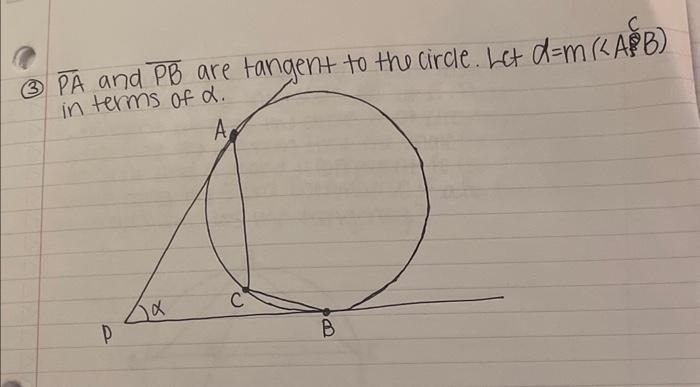 ③ PA and PB are tangent to the circle. Let α=m(<ACB)
in terms of α.
A
C
α
P
B